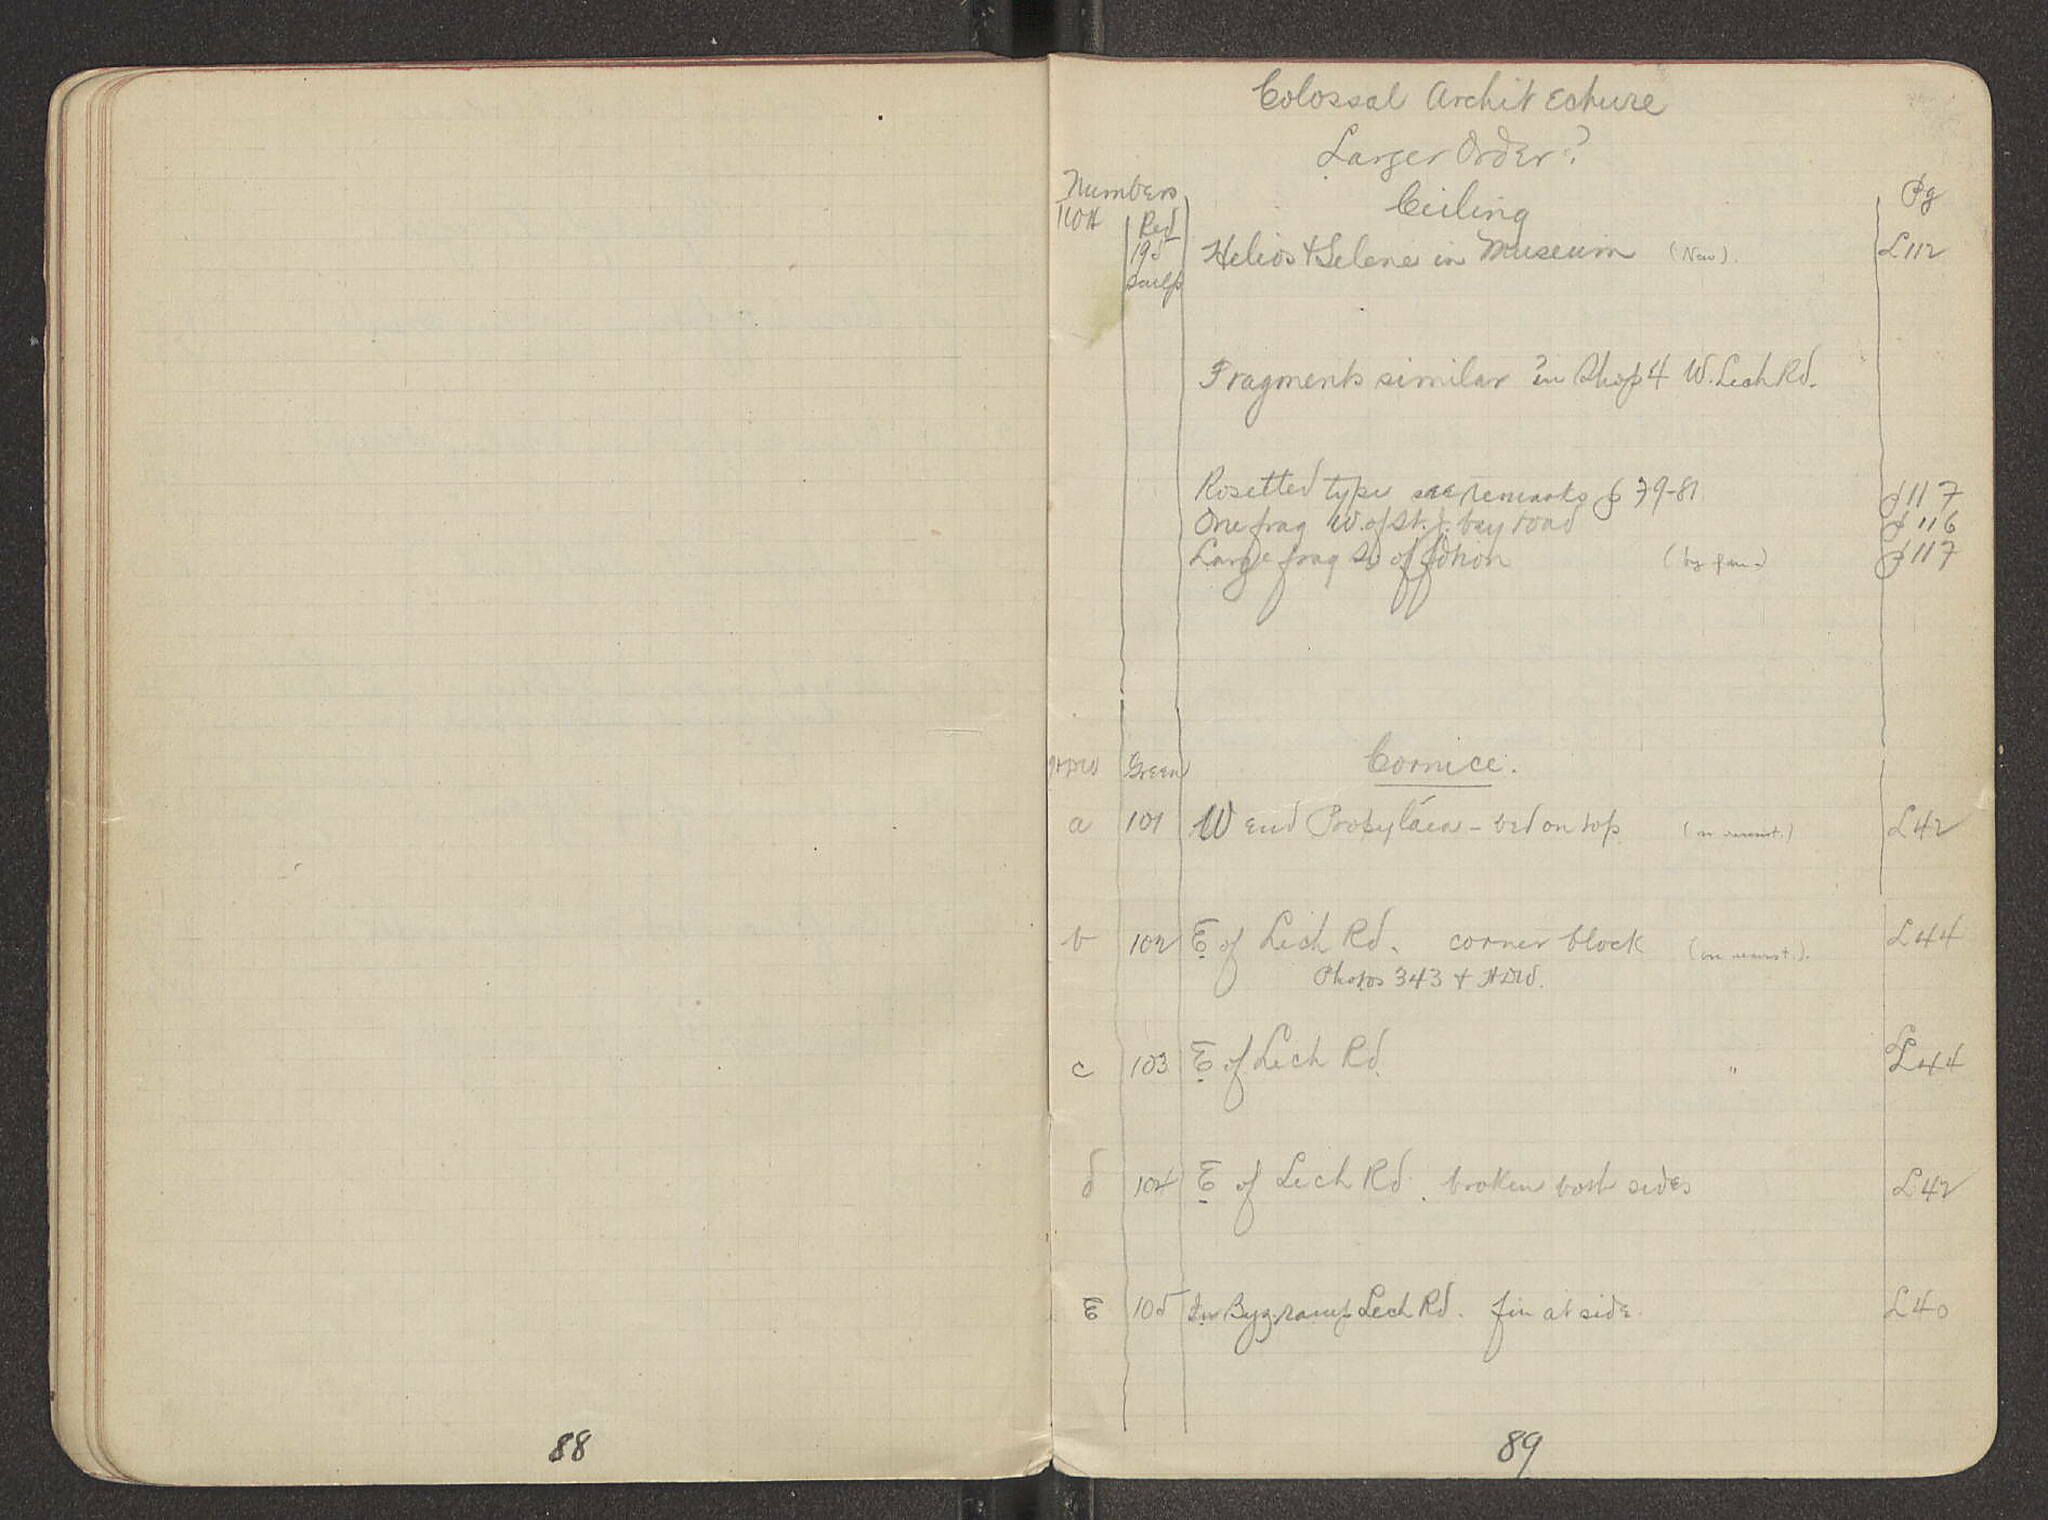 Colossal Architecture
Larger Order?
Numbers Ceiling Pg
Red
195 Helios & Selene in Museum (New). L112
Sculp
Fragments similar in Shop 4 W. Lech Rd.
Rosetted type see remarks p 79-81 p 117
One frag W. of St. J. bey road p 116
Large frag So of p 117
HDW Green Cornice.
a 101 W end Propyläea - bed on top L42
b 102 E of Lech Rd. corner block L44
Photos 343 & HDW.
c 103 E of Lech Rd. " L44
d 104 E of Lech Rd. broken both sides L42
E 105 In Byz. ramp Lech Rd. fin at side. L40
88
89